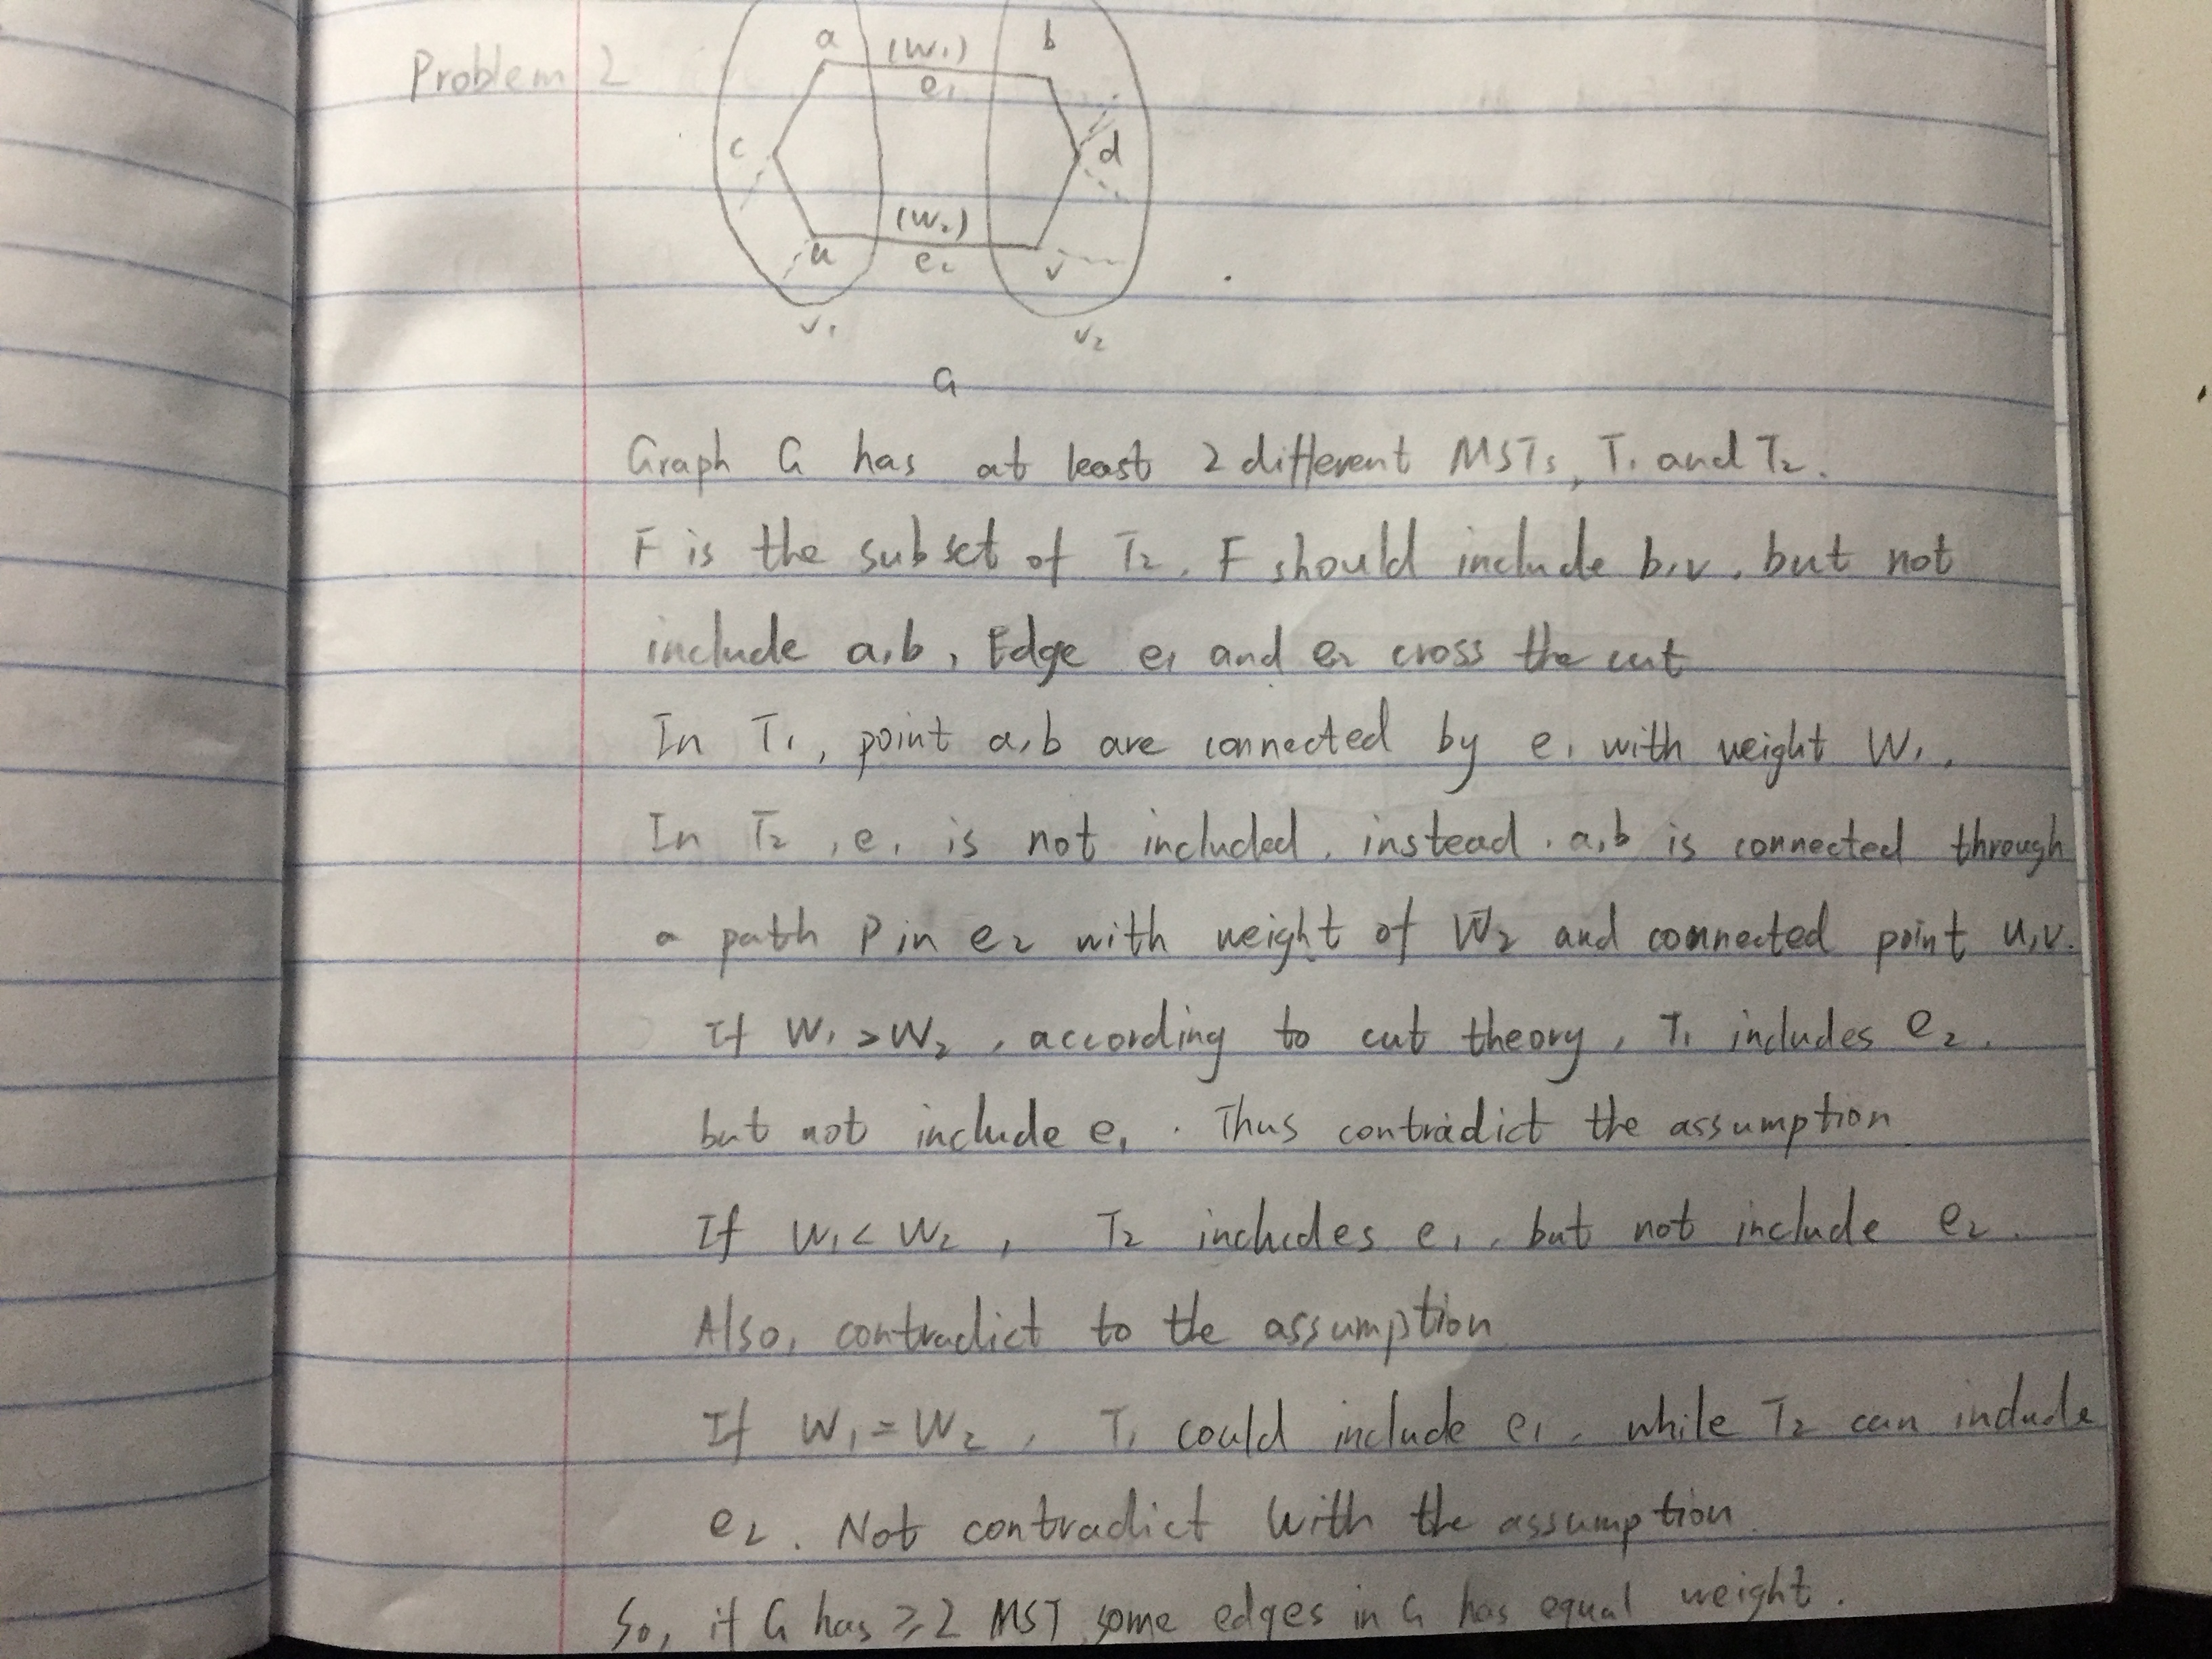 Problem 2
a (W₁) b
e₁
c d
(W₂)
u e₂ v
V₁ V₂
G
Graph G has at least 2 different MSTs, T₁ and T₂.
F is the subset of T₂. F should include b,v, but not
include a,b, Edge e₁ and e₂ cross the cut
In T₁, point a,b are connected by e₁ with weight W₁.
In T₂, e₁ is not included. instead. a,b is connected through
a path P in e₂ with weight of W₂ and connected point u,v.
If W₁ > W₂, according to cut theory, T₁ includes e₂.
but not include e₁. Thus contradict the assumption
If W₁ < W₂, T₂ includes e₁, but not include e₂.
Also, contradict to the assumption
If W₁ = W₂, T₁ could include e₁, while T₂ can include
e₂. Not contradict with the assumption.
So, if G has ≥2 MST some edges in G has equal weight.